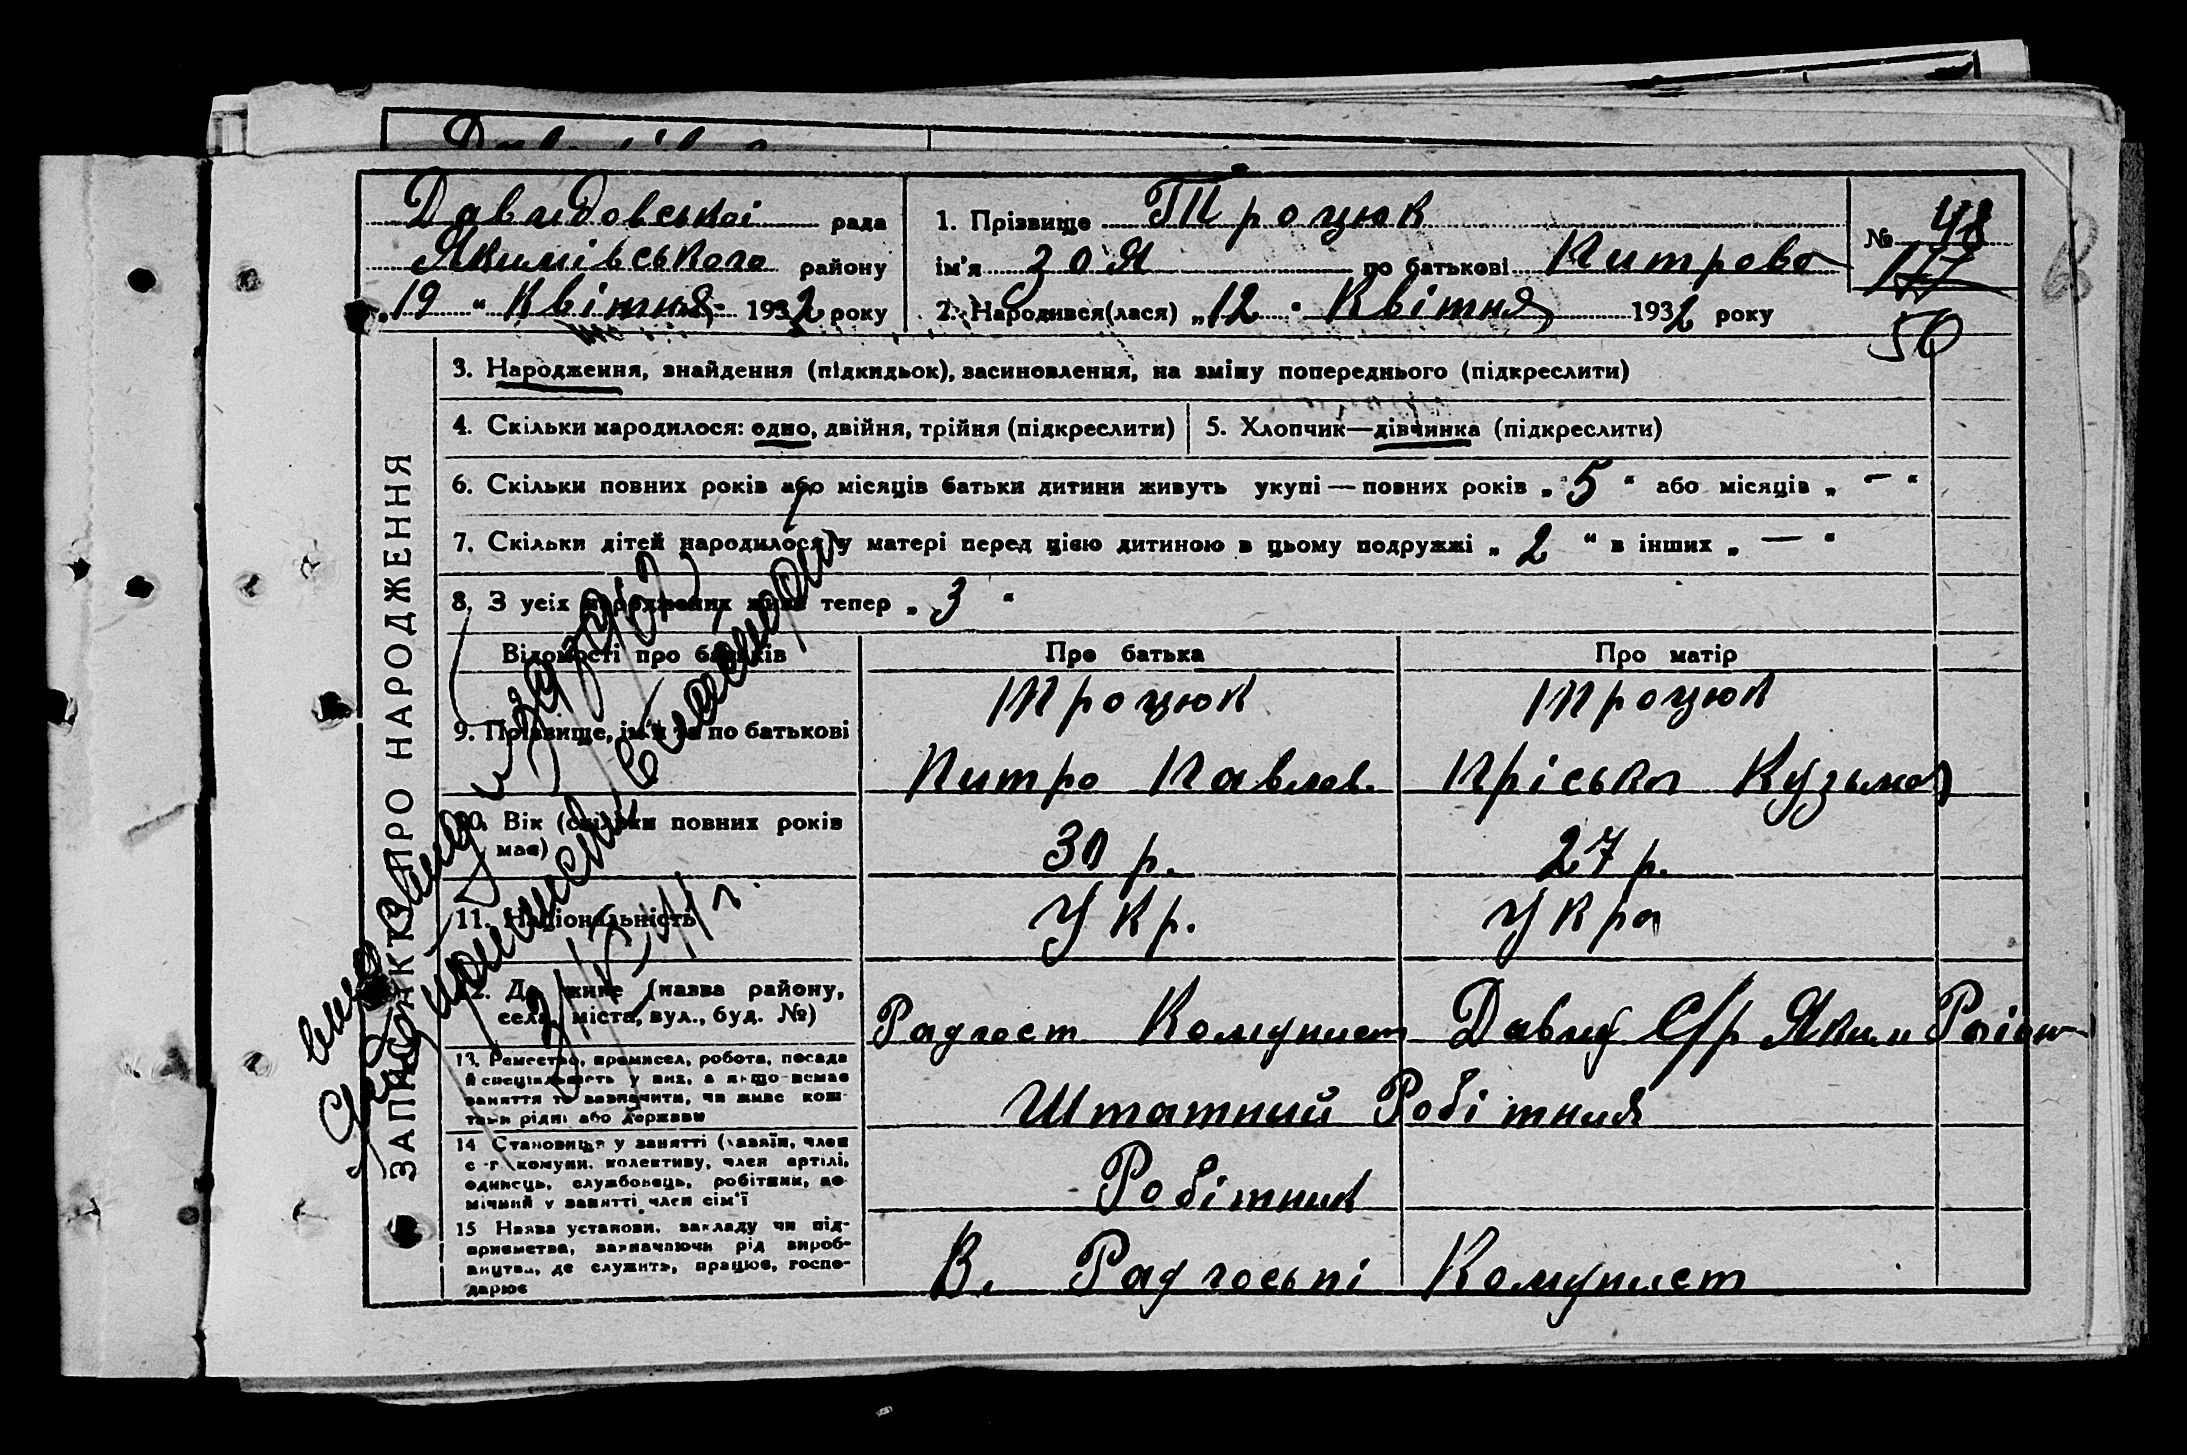 Давидовської рада
Якимівського району
„19“ Квітня 1932 року
1. Прізвище Троцюк
ім'я Зоя по батькові Питрова
2. Народився(лася) „12“ Квітня 1932 року
№ 48
117
50
ЗАПИС АКТУ ПРО НАРОДЖЕННЯ
3. Народження, знайдення (підкидьок), засиновлення, на зміну попереднього (підкреслити)
4. Скільки народилося: одно, двійня, трійня (підкреслити)
5. Хлопчик—дівчинка (підкреслити)
6. Скільки повних років або місяців батьки дитини живуть укупі—повних років „5“ або місяців „—“
7. Скільки дітей народилося у матері перед цією дитиною в цьому подружжі „2“ в інших „—“
8. З усіх народжених живе тепер „3“
Відомості про батьків
Про батька
Про матір
9. Прізвище, ім'я та по батькові
Троцюк
Питро Павлов.
Троцюк
Пріська Кузьмов
10. Вік (скільки повних років має)
30 р.
27 р.
11. Національність
Укр.
Укра
12. Де живе (назва району,
села, міста, вул., буд. №)
Радгост Комунист Давид С/р Яким Раіон
13. Ремество, промисел, робота, посада
й спеціальність у них, а якщо немає
заняття то зазначити, чи живе кош-
тами рідні або держави
Штатний Робітник
14 Становище у занятті (хазяїн, член
с-г комуни, колективу, член артілі,
одинець, службовець, робітник, по-
мічний у занятті член сім'ї
Робітник
15 Назва установи, закладу чи під-
приємства, зазначаючи рід вироб-
ництва, де служить, працює, госпо-
дарює
В. Радгоспі Комунист